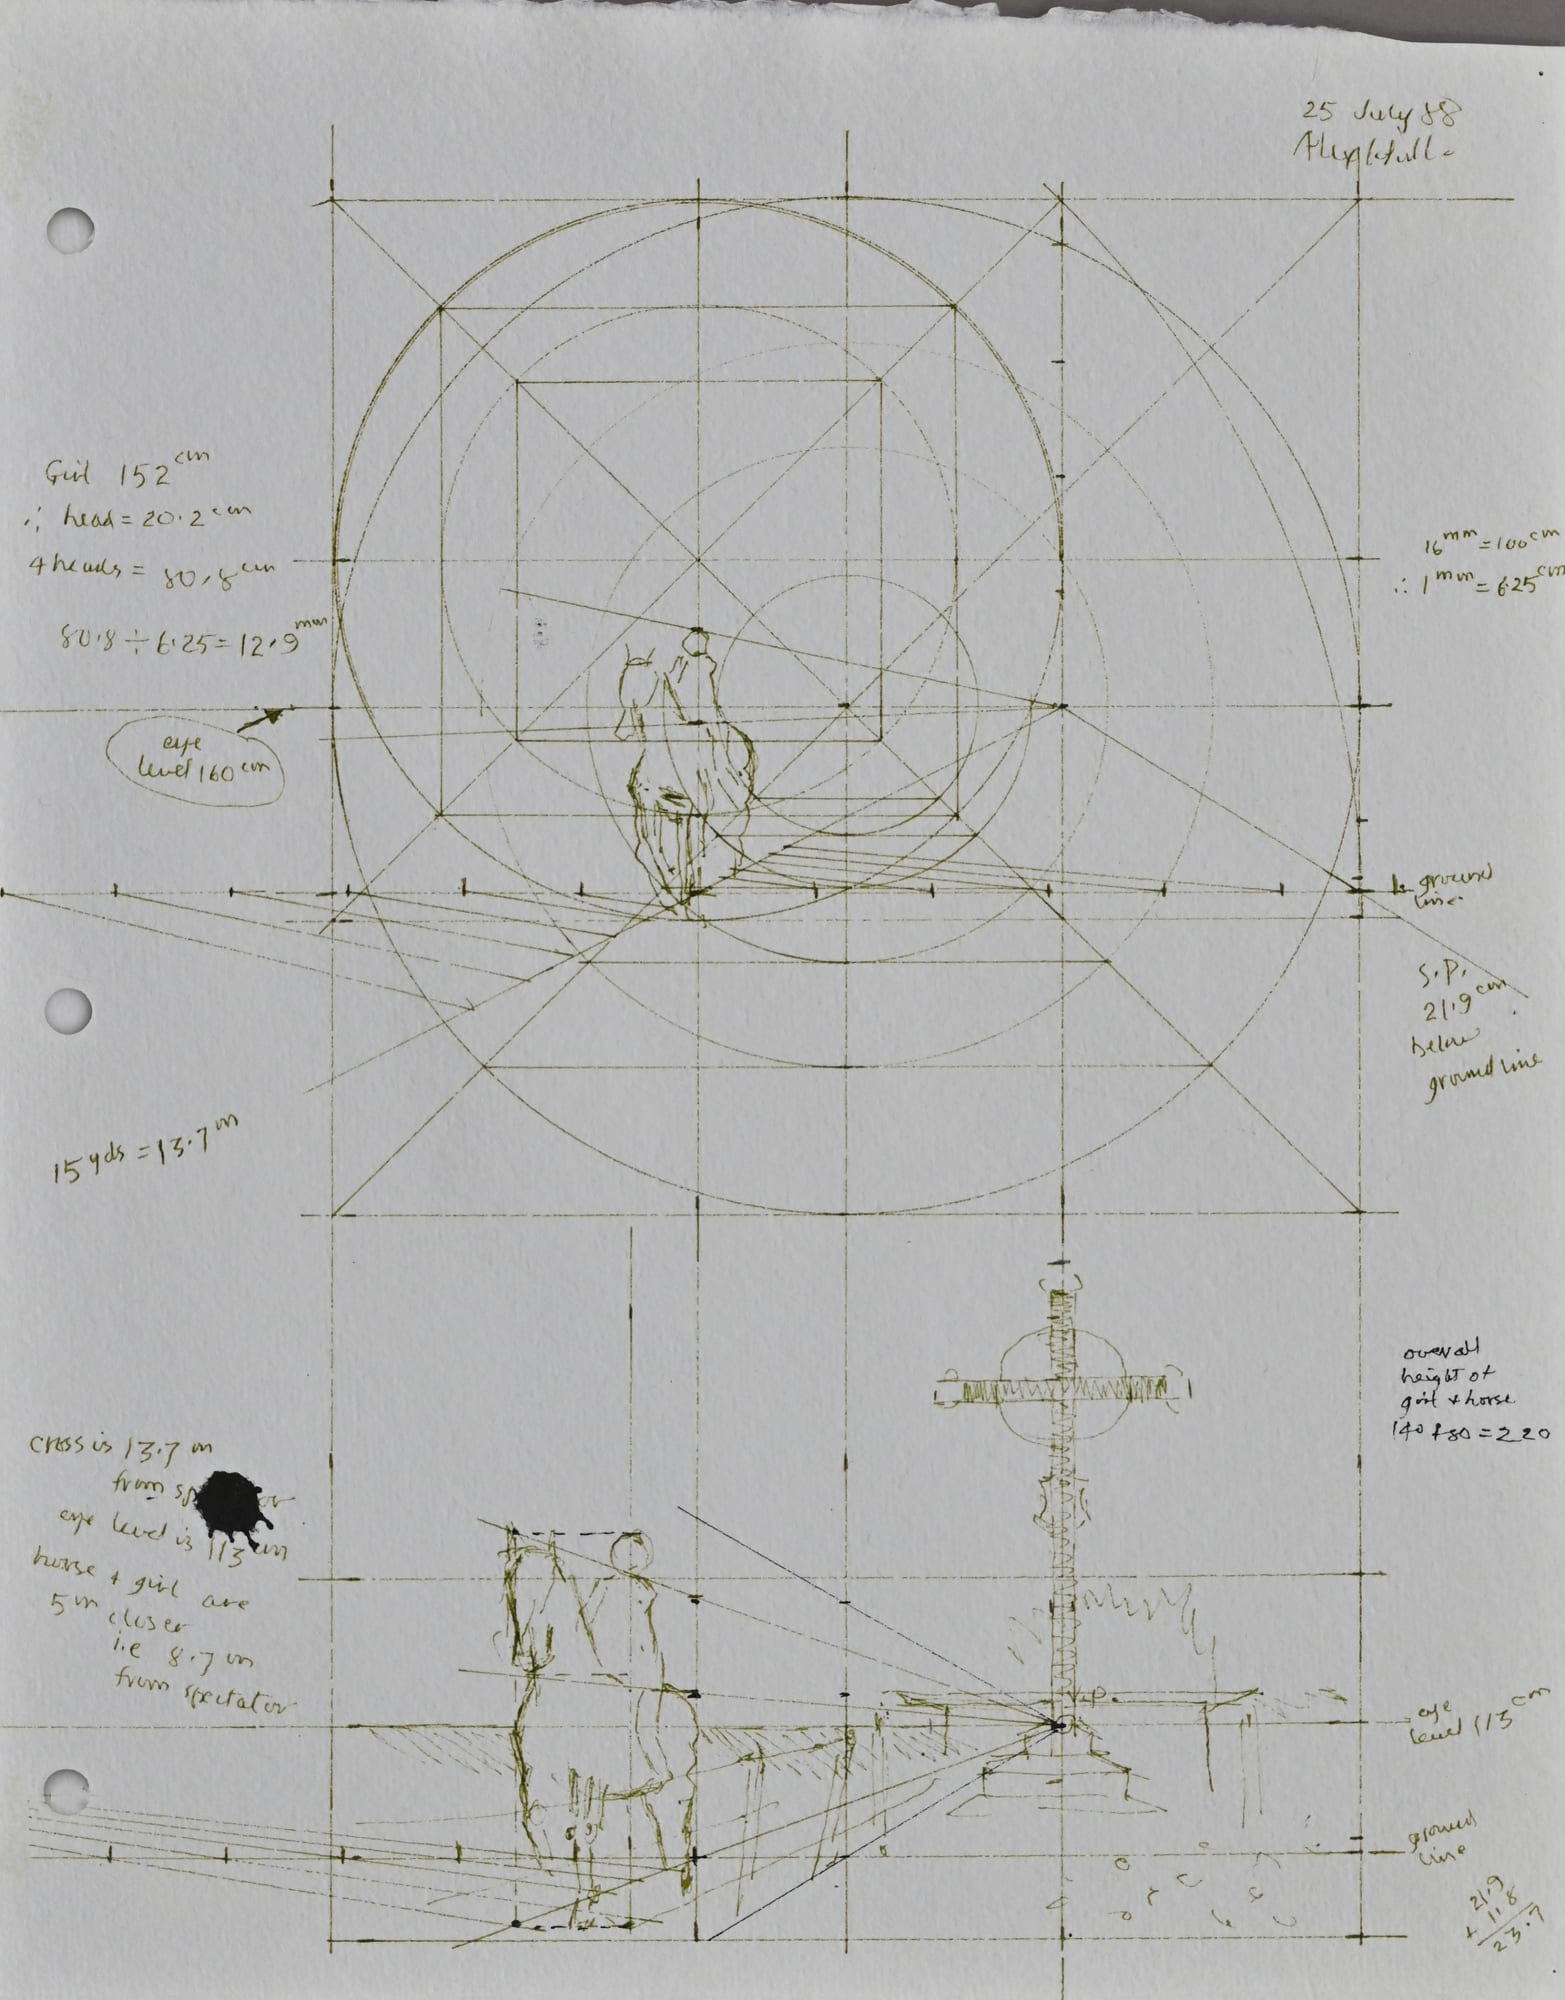 25 July 88
Girl 152 cm
∴ head = 20.2 cm
4 heads = 80.8 cm
80.8 ÷ 6.25 = 12.9 mm
16 mm = 100 cm
∴ 1 mm = 6.25 cm
eye
level 160 cm
ground
line
S.P.
21.9 cm
below
ground line
15 yds = 13.7 m
overall
height of
girl + horse
140 + 80 = 220
cross is 13.7 m
from
eye level is 113 cm
horse + girl are
5 m closer
i.e 8.7 m
from spectator
V.P.
eye
level 113 cm
ground
line
21.9
+ 1.8
23.7